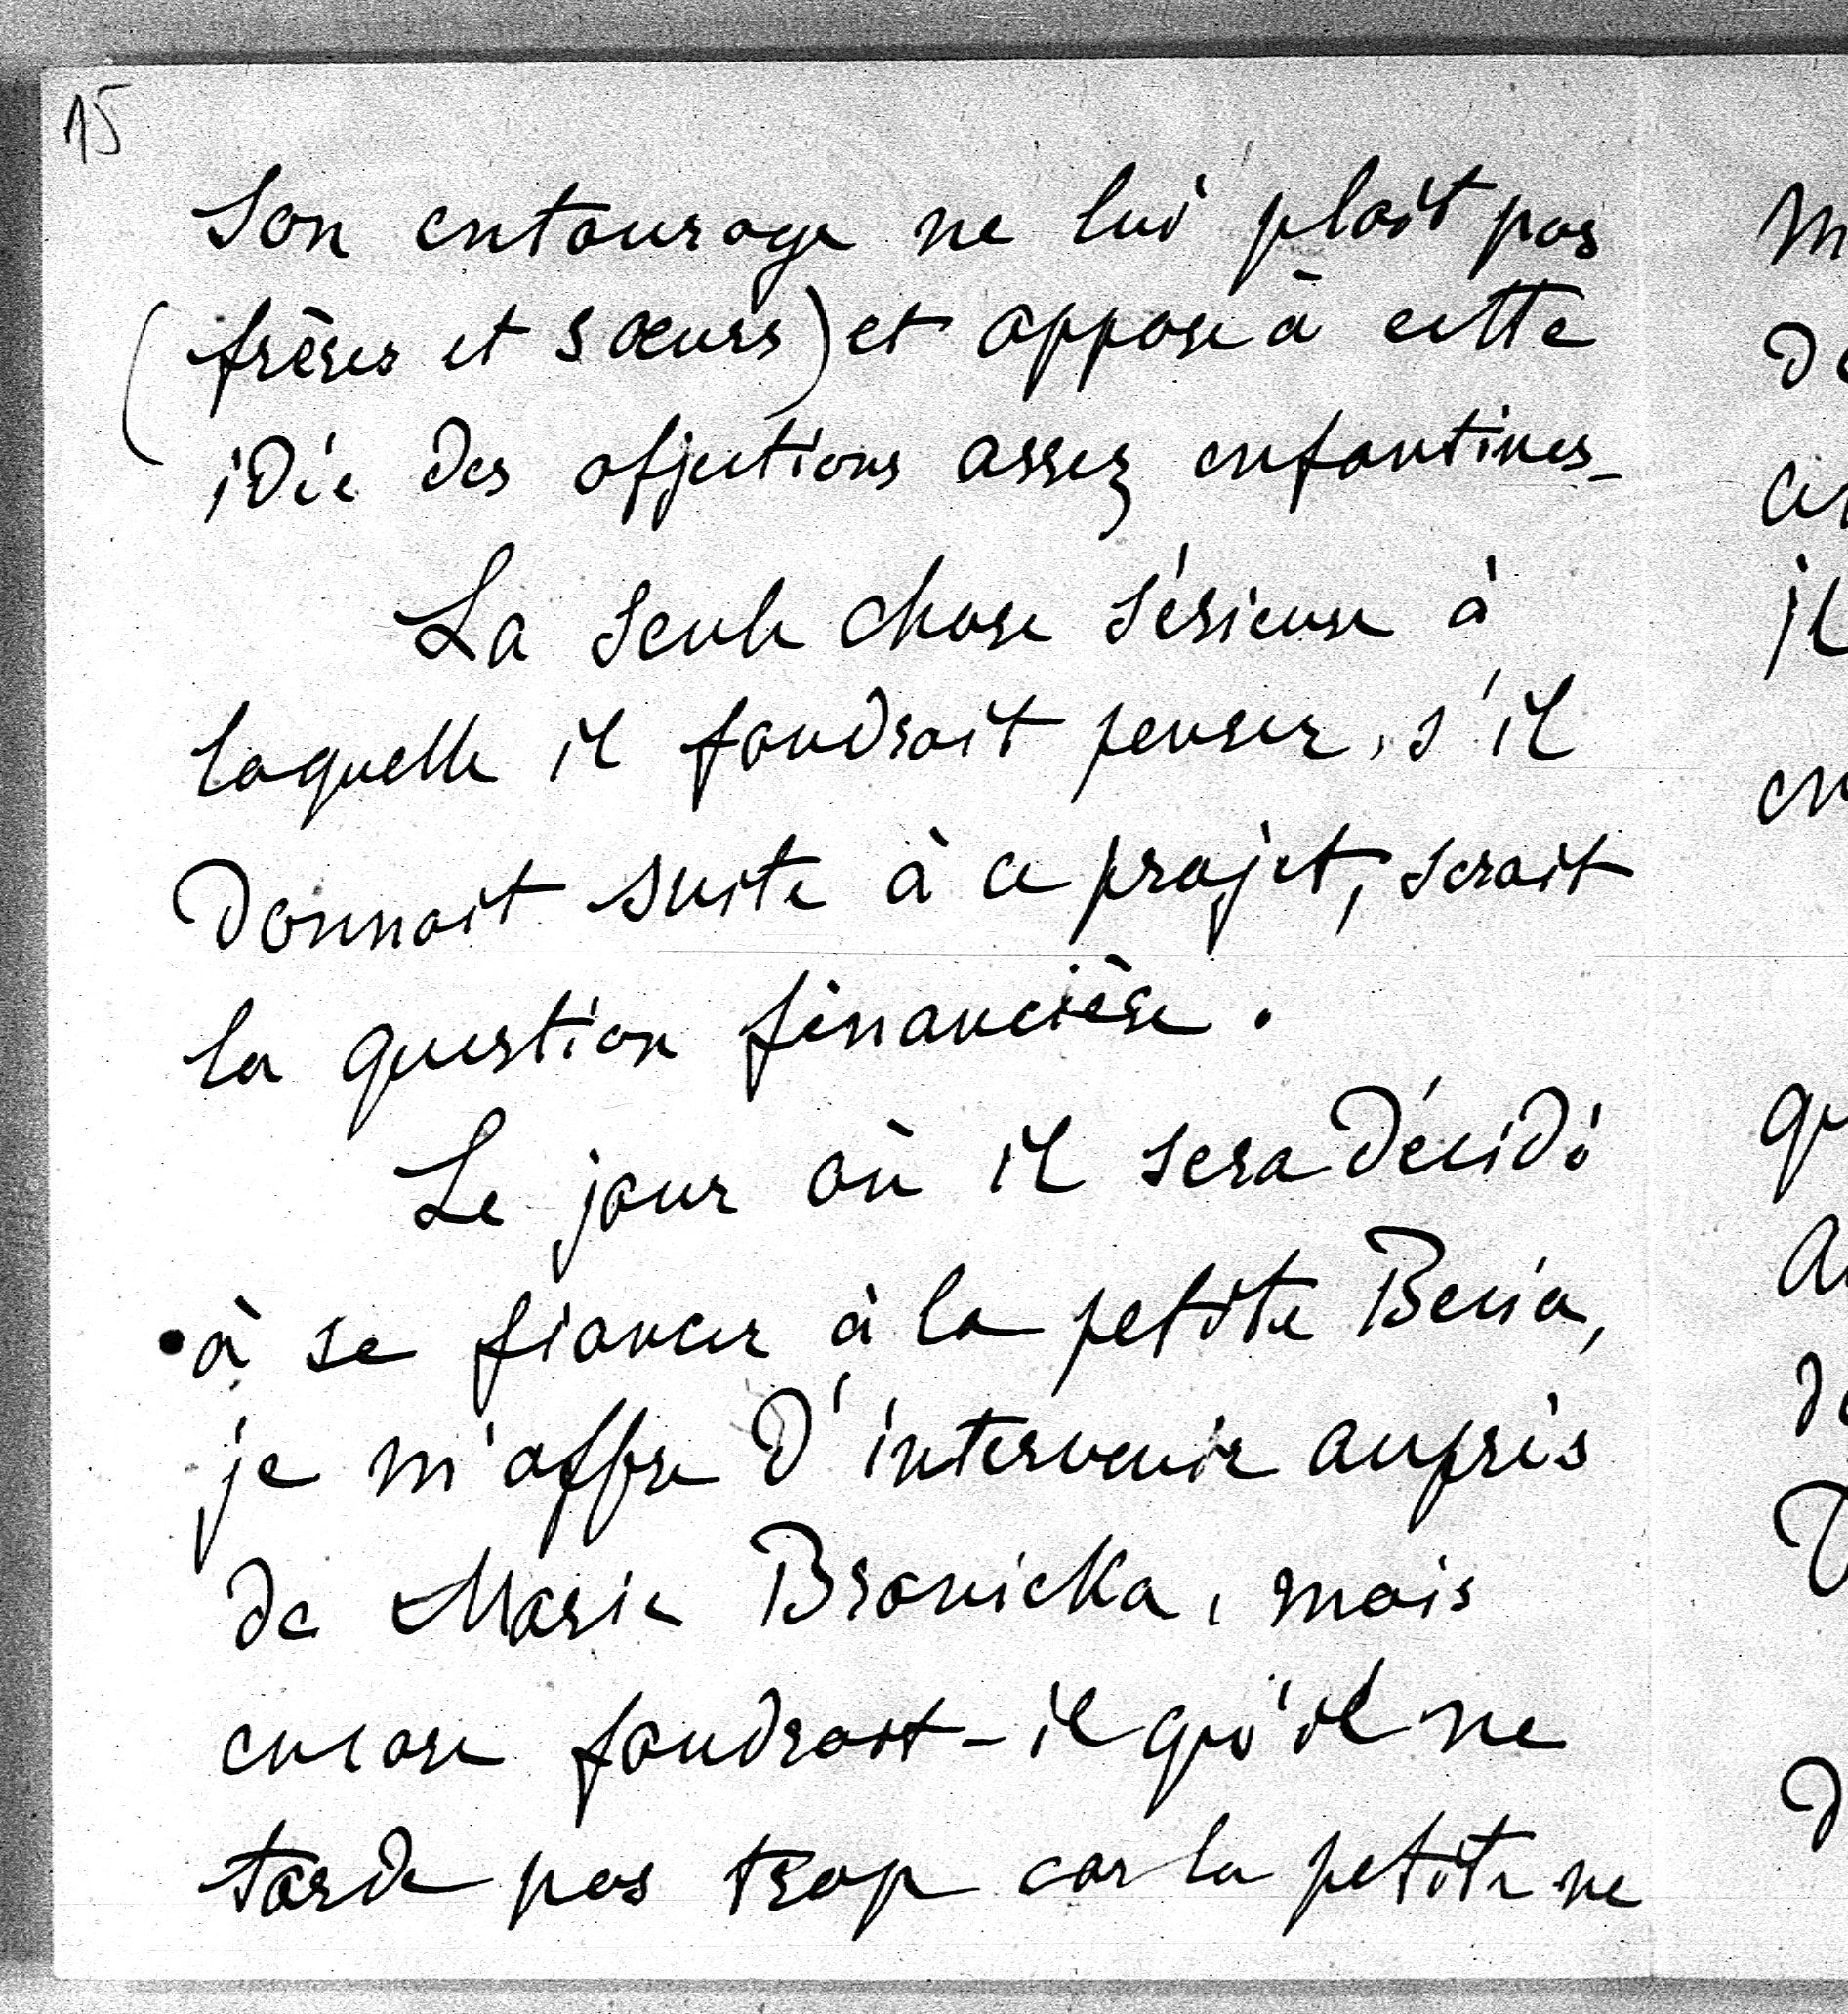 15
Son entourage ne lui plaît pas
(frères et sœurs) et oppose à cette
idée des objections assez enfantines_
La seule chose sérieuse à
laquelle il faudrait penser, s'il
donnait suite à ce projet, serait
la question financière.
Le jour où il sera décidé
à se fiancer à la petite
je m'offre d'intervenir auprès
de Marie Branicka, mais
encore faudrait-il qu'il ne
tarde pas trop car la petite ne